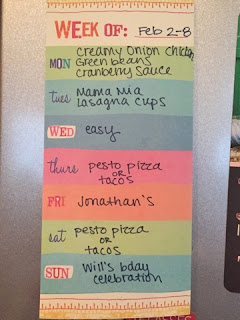 WEEK OF: Feb 2-8
MON creamy onion chicken
Green beans
cranberry sauce
tues Mama Mia
Lasagna cups
WED easy
thurs pesto pizza
OR
tacos
FRI Jonathan's
sat pesto pizza
OR
tacos
SUN Will's bday
celebration